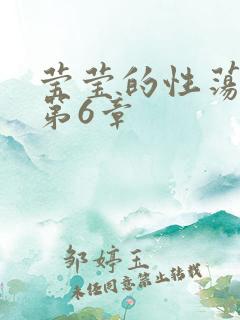 莹莹的性荡
第6章
邹婷玉
未经同意禁止转载